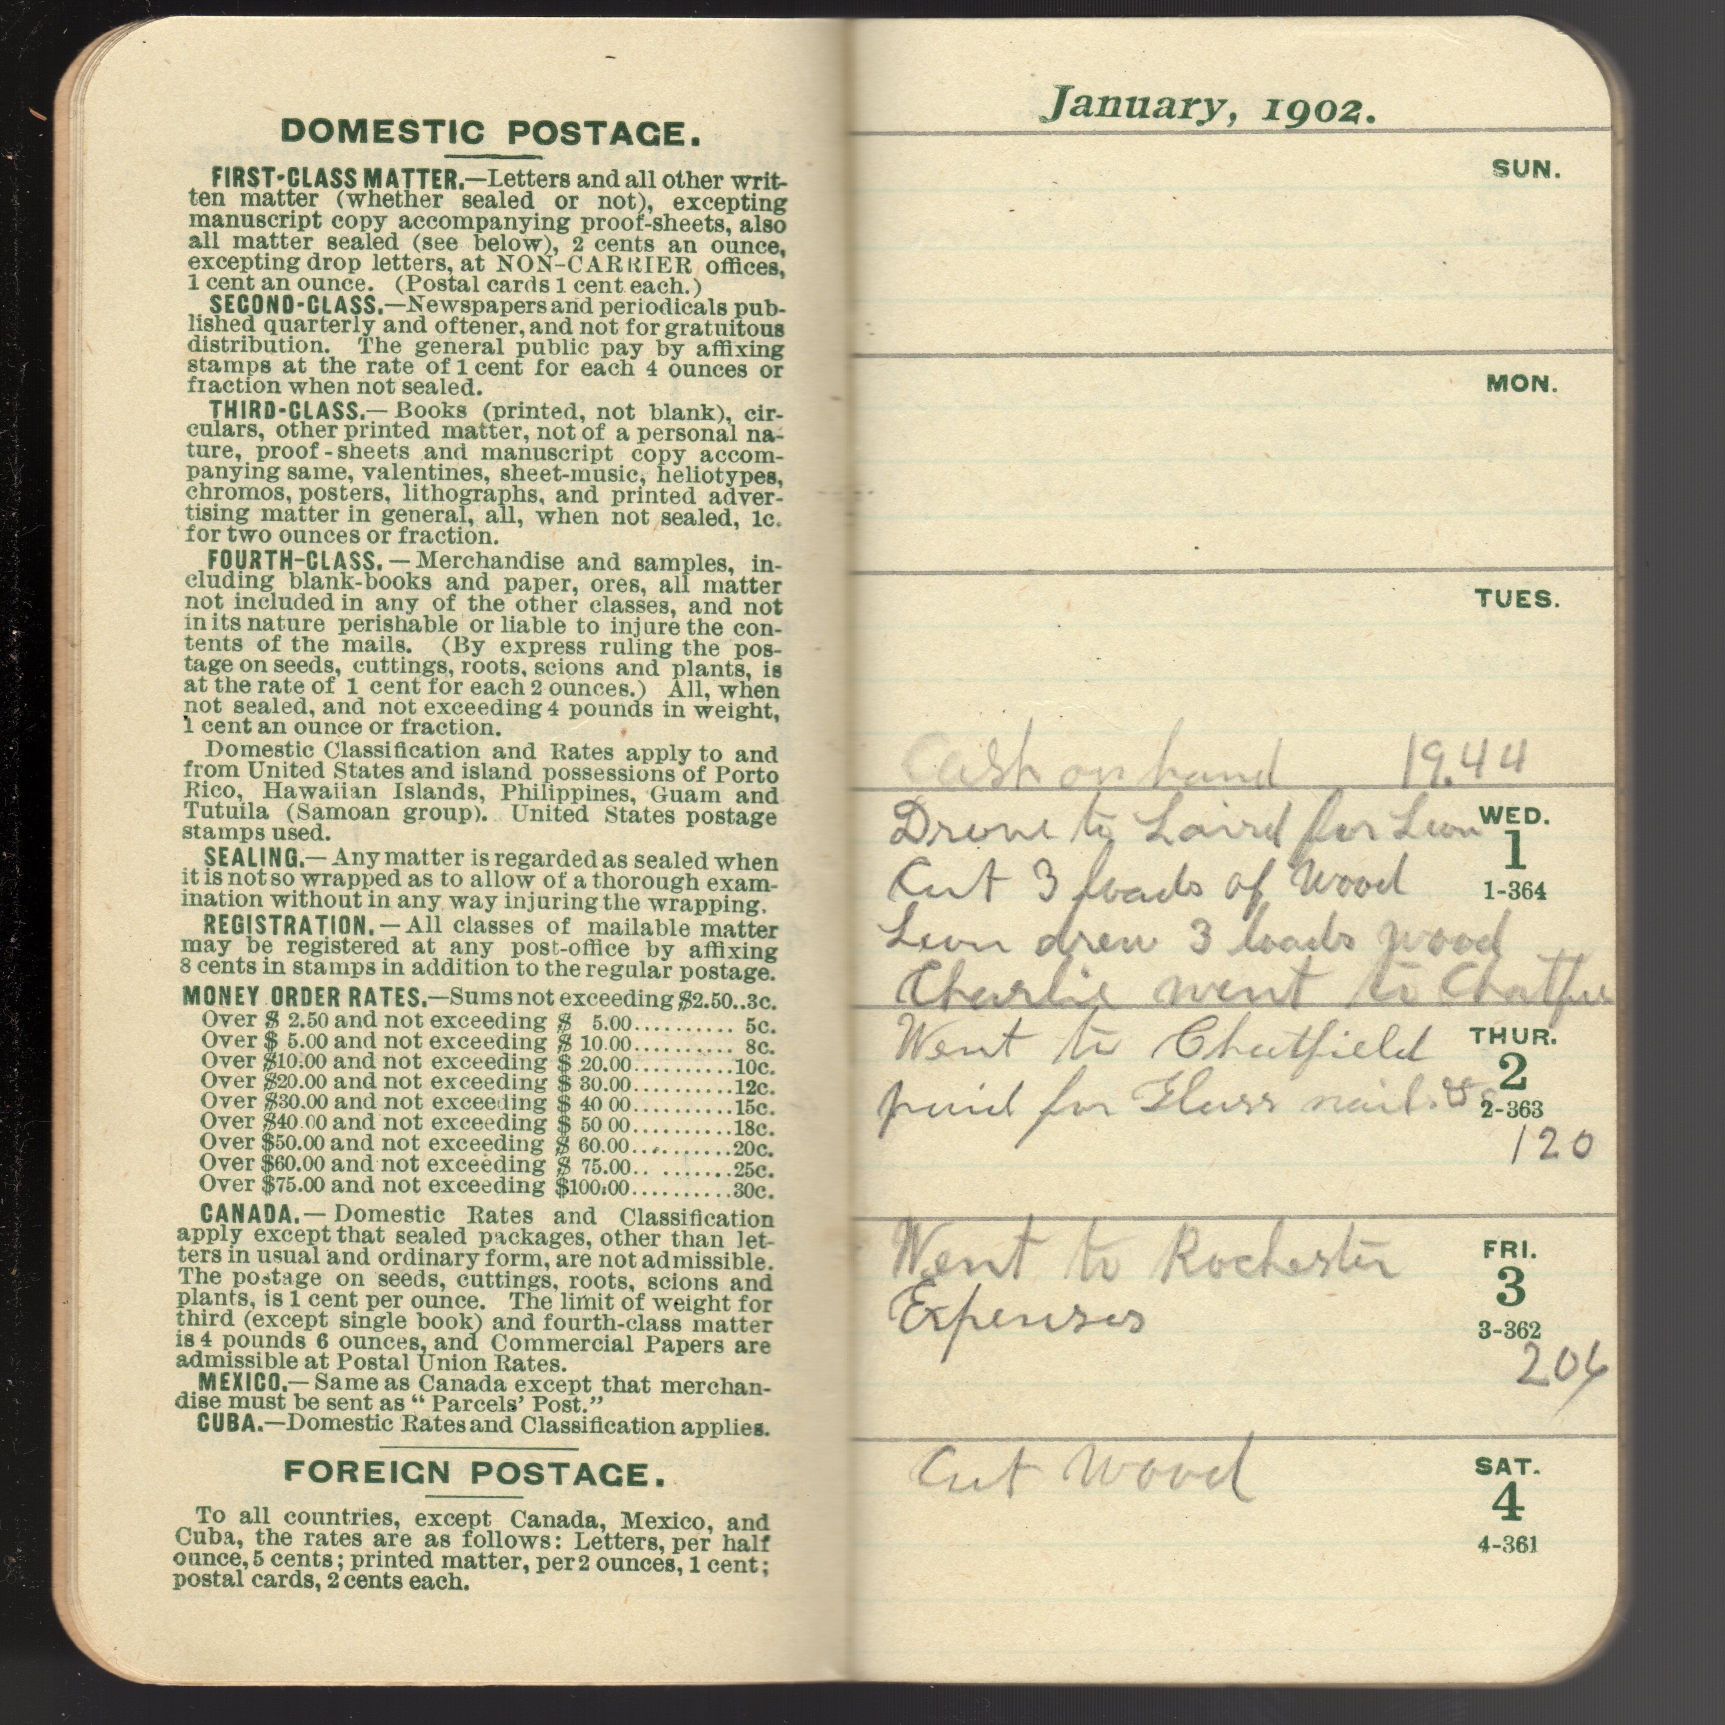 DOMESTIC POSTAGE.
FIRST-CLASS MATTER.—Letters and all other writ-
ten matter (whether sealed or not), excepting
manuscript copy accompanying proof-sheets, also
all matter sealed (see below), 2 cents an ounce,
excepting drop letters, at NON-CARRIER offices,
1 cent an ounce. (Postal cards 1 cent each.)
SECOND-CLASS.—Newspapers and periodicals pub-
lished quarterly and oftener, and not for gratuitous
distribution. The general public pay by affixing
stamps at the rate of 1 cent for each 4 ounces or
fraction when not sealed.
THIRD-CLASS.—Books (printed, not blank), cir-
culars, other printed matter, not of a personal na-
ture, proof-sheets and manuscript copy accom-
panying same, valentines, sheet-music, heliotypes,
chromos, posters, lithographs, and printed adver-
tising matter in general, all, when not sealed, 1c.
for two ounces or fraction.
FOURTH-CLASS.—Merchandise and samples, in-
cluding blank-books and paper, ores, all matter
not included in any of the other classes, and not
in its nature perishable or liable to injure the con-
tents of the mails. (By express ruling the pos-
tage on seeds, cuttings, roots, scions and plants, is
at the rate of 1 cent for each 2 ounces.) All, when
not sealed, and not exceeding 4 pounds in weight,
1 cent an ounce or fraction.
Domestic Classification and Rates apply to and
from United States and island possessions of Porto
Rico, Hawaiian Islands, Philippines, Guam and
Tutuila (Samoan group). United States postage
stamps used.
SEALING.—Any matter is regarded as sealed when
it is not so wrapped as to allow of a thorough exam-
ination without in any way injuring the wrapping.
REGISTRATION.—All classes of mailable matter
may be registered at any post-office by affixing
8 cents in stamps in addition to the regular postage.
MONEY ORDER RATES.—Sums not exceeding $2.50..3c.
Over $ 2.50 and not exceeding $ 5.00.......... 5c.
Over $ 5.00 and not exceeding $ 10.00.......... 8c.
Over $10.00 and not exceeding $ 20.00..........10c.
Over $20.00 and not exceeding $ 30.00..........12c.
Over $30.00 and not exceeding $ 40 00..........15c.
Over $40.00 and not exceeding $ 50 00..........18c.
Over $50.00 and not exceeding $ 60.00..........20c.
Over $60.00 and not exceeding $ 75.00.. .......25c.
Over $75.00 and not exceeding $100.00..........30c.
CANADA.—Domestic Rates and Classification
apply except that sealed packages, other than let-
ters in usual and ordinary form, are not admissible.
The postage on seeds, cuttings, roots, scions and
plants, is 1 cent per ounce. The limit of weight for
third (except single book) and fourth-class matter
is 4 pounds 6 ounces, and Commercial Papers are
admissible at Postal Union Rates.
MEXICO.—Same as Canada except that merchan-
dise must be sent as "Parcels' Post."
CUBA.—Domestic Rates and Classification applies.
FOREIGN POSTAGE.
To all countries, except Canada, Mexico, and
Cuba, the rates are as follows: Letters, per half
ounce, 5 cents; printed matter, per 2 ounces, 1 cent;
postal cards, 2 cents each.
January, 1902.
SUN.
MON.
TUES.
Cash on hand 19.44
WED.
1
1-364
Drove to Laird for Leon
Cut 3 loads of Wood
Leon drew 3 loads wood
Charlie went to Chatfie
THUR.
2
2-363
Went to Chatfield
paid for Glass nails &c
120
FRI.
3
3-362
Went to Rochester
Expenses
206
SAT.
4
4-361
Cut Wood